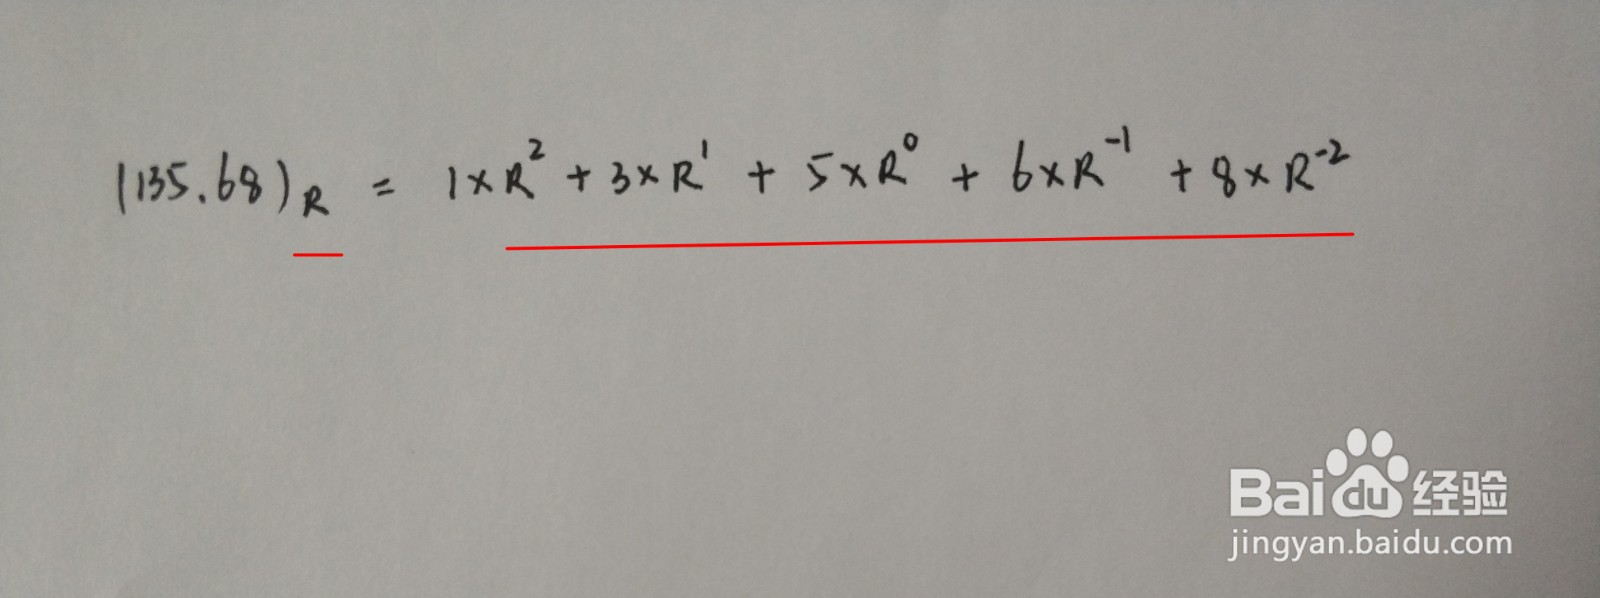 (135.68)_R = 1×R² + 3×R¹ + 5×R⁰ + 6×R⁻¹ + 8×R⁻²
Baidu经验
jingyan.baidu.com